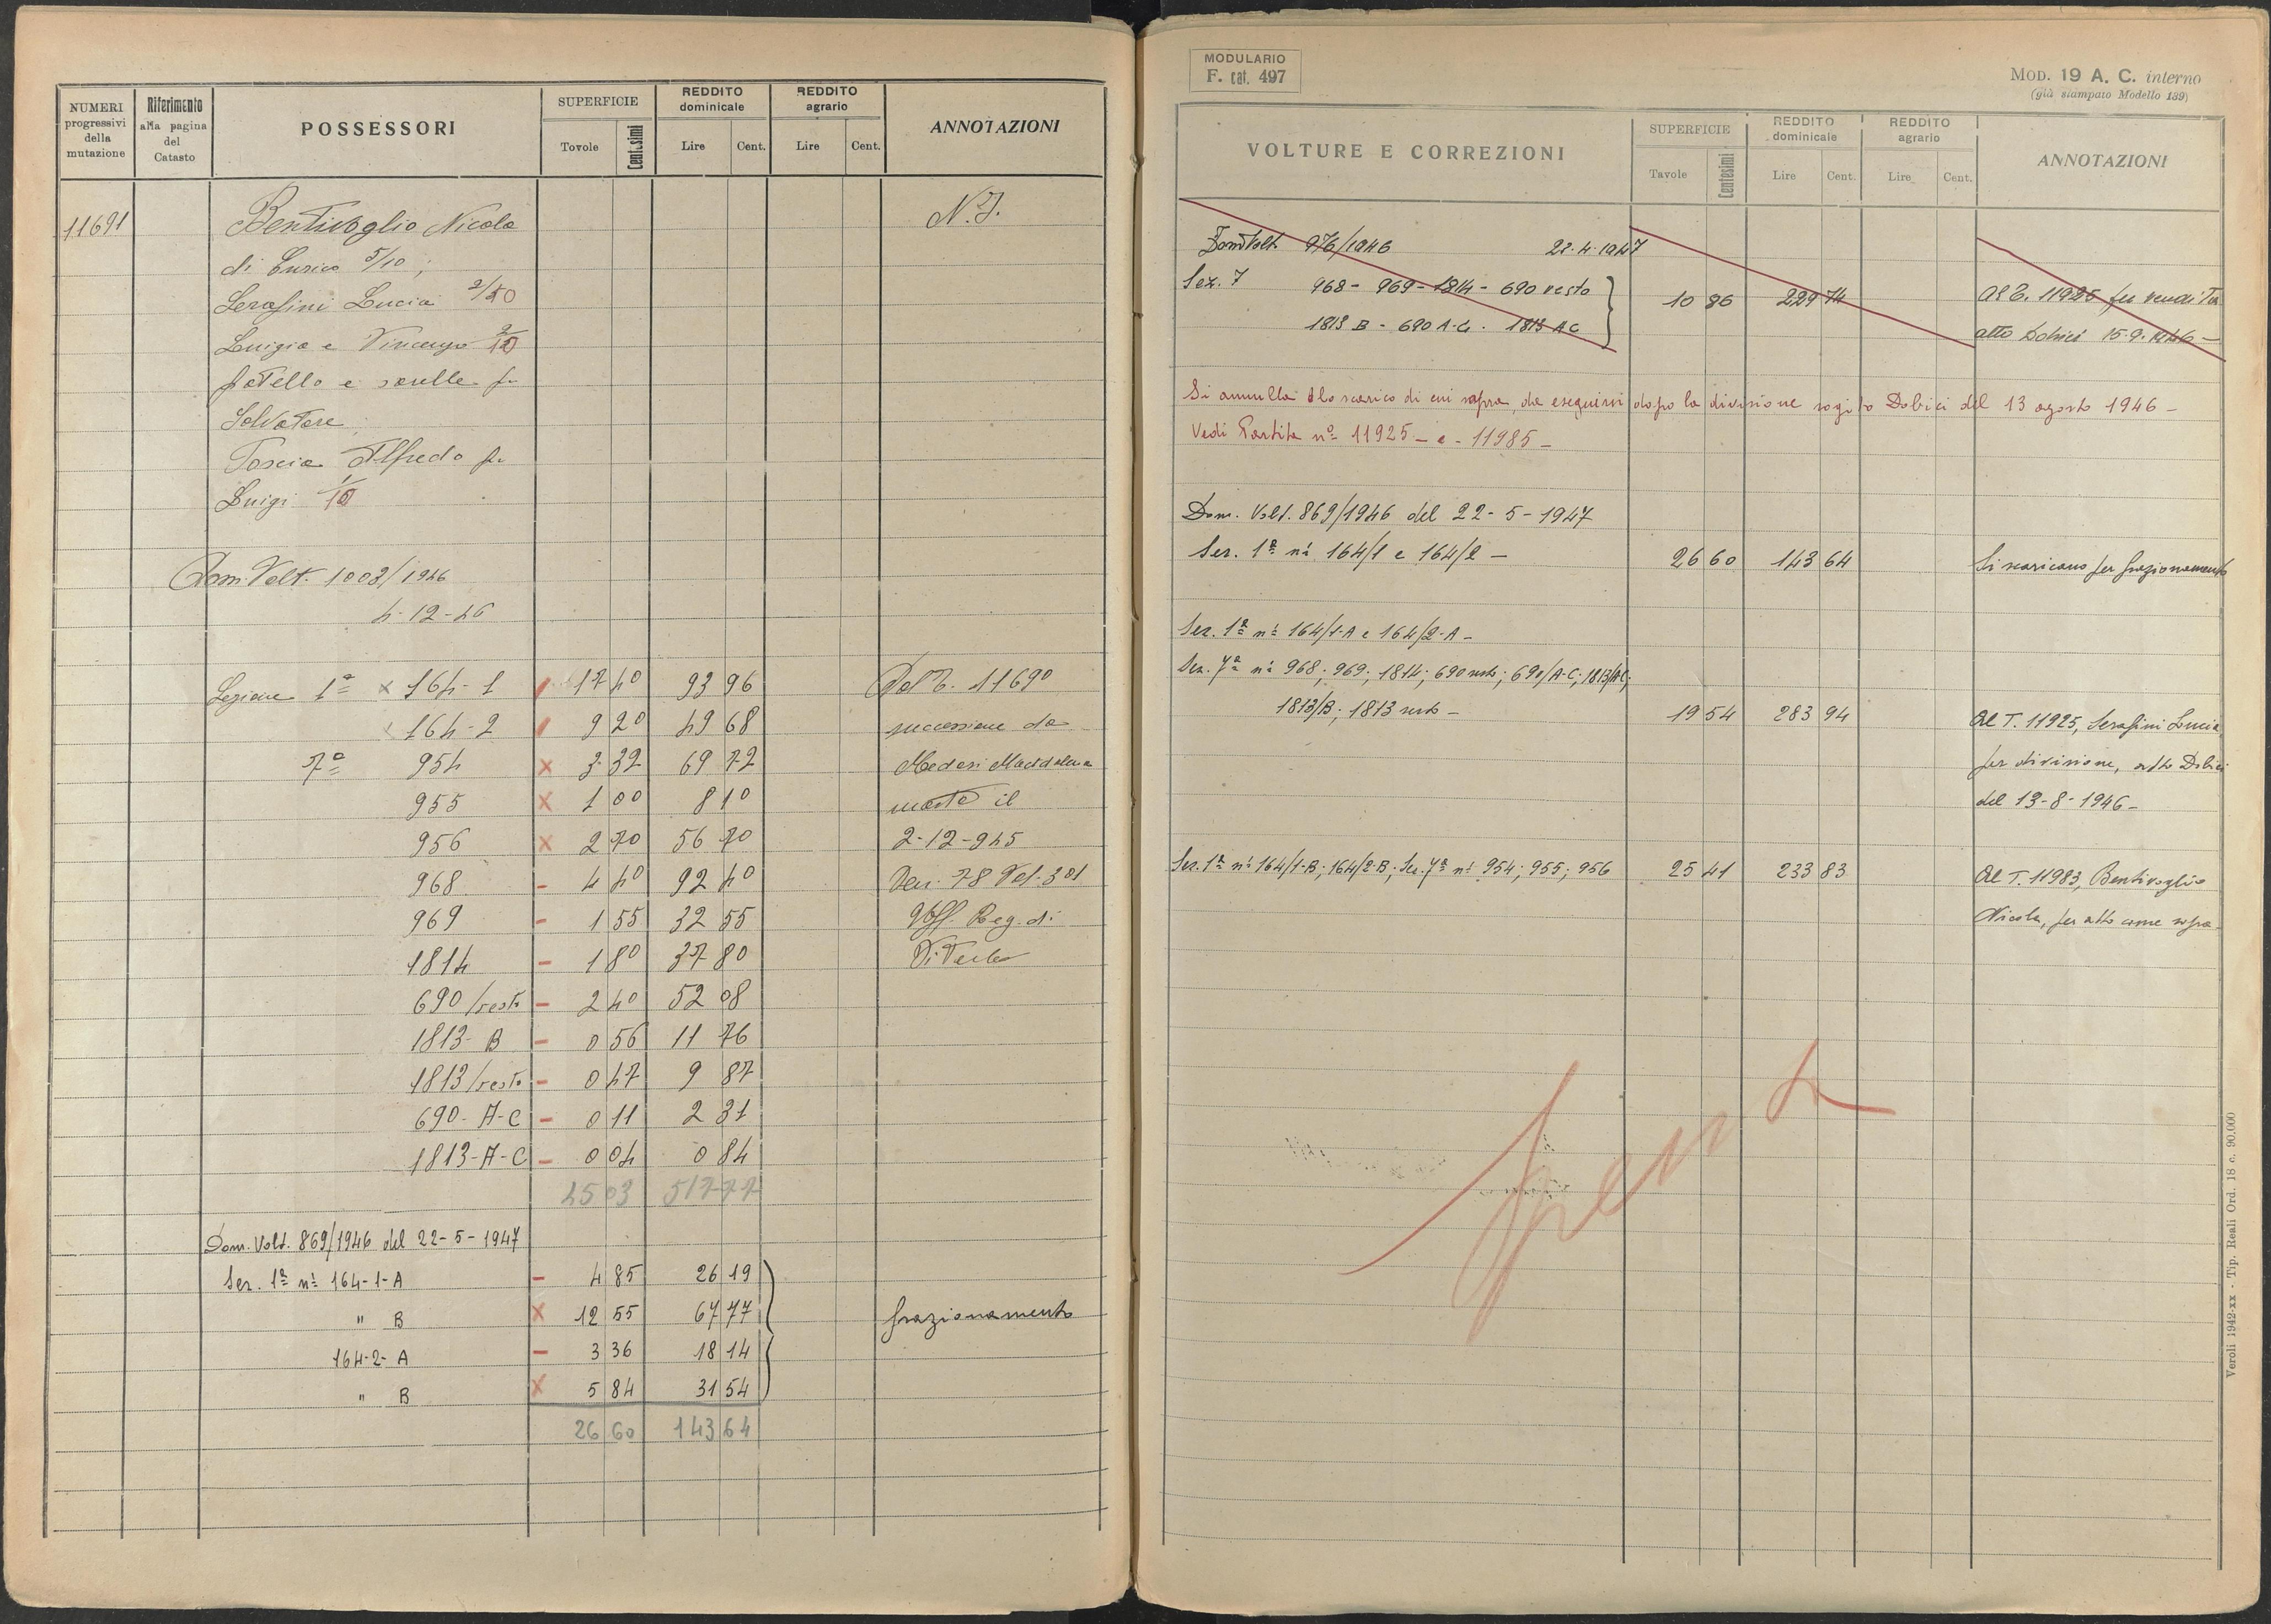 NUMERI progressivi della mutazione
Riferimento alla pagina del Catasto
POSSESSORI
SUPERFICIE
Tovole Centesimi
REDDITO dominicale
Lire Cent.
REDDITO agrario
Lire Cent.
ANNOTAZIONI
11691 Bentivoglio Nicola
di Enrico 5/10;
Serafini Lucia
Luigia e Vincenzo
fratello e sorelle fu
Salvatore
Toscia Alfredo fu
Luigi 1/10
Dom. Volt. 1003/1946
4-12-46
Sezione 1ª x 164-1 17 40 93 96 Dal T. 11690
x 164-2 9 20 49 68 successione da
7ª 954 x 3 32 69 72 Maddalena
955 x 1 00 8 10 morta il
956 x 2 70 56 70 2-12-945
968 - 4 40 92 40 Den. 78 Vol. 301
969 - 1 55 32 55 Uff. Reg. di
1814 - 1 80 37 80 Viterbo
690/resto - 2 40 52 08
1813-B - 0 56 11 76
1813/resto - 0 47 9 87
690-A-C - 0 11 2 31
1813-A-C - 0 04 0 84
45 03 517 77
Dom. Volt. 869/1946 del 22-5-1947
Sez. 1ª nⁱ 164-1-A - 4 85 26 19
" B x 12 55 67 77 frazionamento
164-2-A - 3 36 18 14
" B x 5 84 31 54
26 60 143 64
MODULARIO
F. cat. 497
MOD. 19 A. C. interno
(già stampato Modello 139)
VOLTURE E CORREZIONI
SUPERFICIE
Tavole Centesimi
REDDITO dominicale
Lire Cent.
REDDITO agrario
Lire Cent.
ANNOTAZIONI
Dom Volt. 976/1946 22-4-1947
Sez. 7 968 - 969 - 1814 - 690 resto 10 86 229 74 Al T. 11925 per vendita
1813 B - 690 A-C - 1813 AC atto Dobici 15-9-1946 -
Si annulla lo scarico di cui sopra, da eseguirsi dopo la divisione rogito Dobici del 13 agosto 1946 -
Vedi Partita nº 11925 - e - 11985 -
Dom. Volt. 869/1946 del 22-5-1947
Sez. 1ª nⁱ 164/1 e 164/2 - 26 60 143 64 Si scaricano per frazionamento
Sez. 1ª nⁱ 164/1-A e 164/2-A -
Sez. 7ª nⁱ 968; 969; 1814; 690 resto; 690/A-C; 1813/A-C;
1813/B; 1813 resto - 19 54 283 94 Al T. 11925, Serafini Lucia,
per divisione, atto Dobici
del 13-8-1946 -
Sez. 1ª nⁱ 164/1-B; 164/2-B; Sez. 7ª nⁱ 954; 955; 956 25 41 233 83 Al T. 11983, Bentivoglio
Nicola, per atto come sopra -
Spenta
Veroli 1942-xx - Tip. Reali Ord. 18 c. 90.000